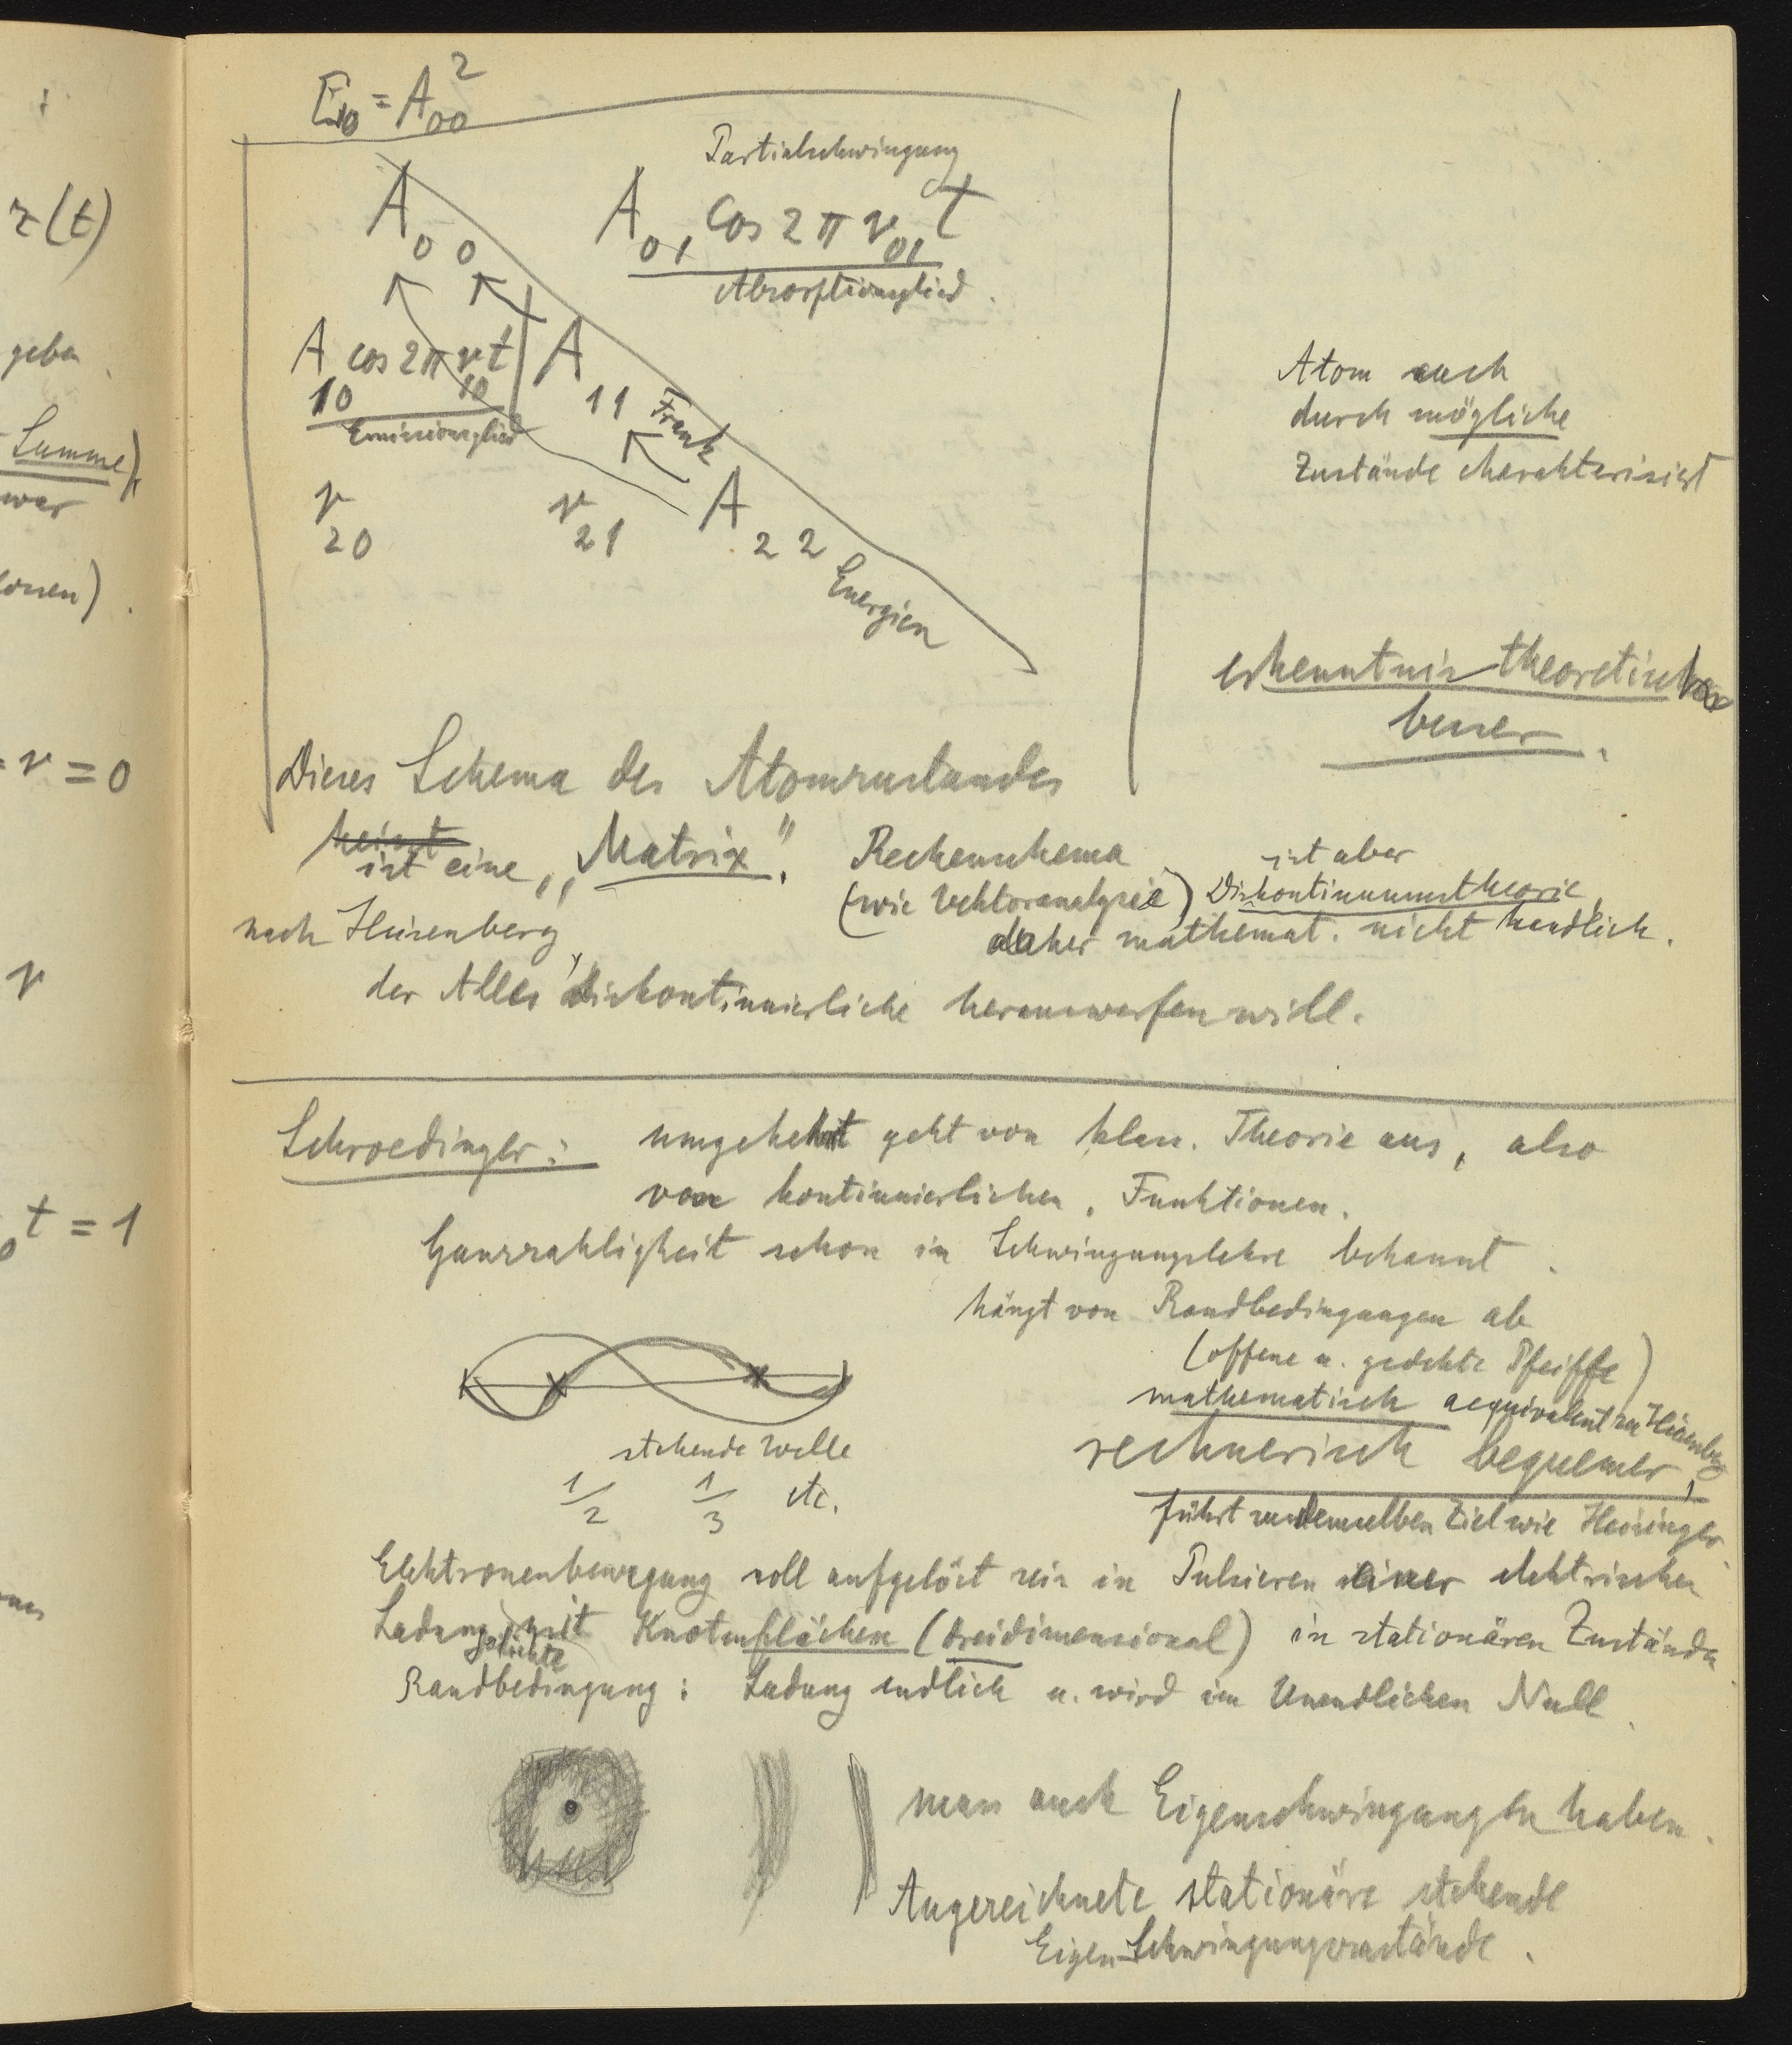 r(t)
geben
Summe)
war
= ν = 0
ν
t = 1
E₁₀ = A₀₀²
Partialschwingung
A₀₀ A₀₁ cos 2π ν₀₁ t
Absorptionsglied.
A₁₀ cos 2π ν₁₀ t A₁₁ Frank
Emissionsglied
ν₂₀ ν₂₁ A₂₂
Energien
Atom auch
durch mögliche
Zustände charakterisiert
erkenntnistheoretisch
besser.
Dieses Schema des Atomzustandes
heisst
ist eine „Matrix". Rechenschema
(wie Vektoranalysis) ist aber
Diskontinuumstheorie,
nach Heisenberg, daher mathemat. nicht handlich.
der Alles diskontinuierliche herauswerfen will.
Schroedinger: umgekehrt geht von klass. Theorie aus, also
von kontinuierlichen, Funktionen.
Ganzzahligkeit schon in Schwingungslehre bekannt.
hängt von Randbedingungen ab
(offene u. gedekte Pfeiffe)
mathematisch aequivalent zu Heisenberg
stehende Welle
rechnerisch bequemer,
1/2 1/3 etc.
führt zu demselben Ziel wie Heisinger.
Elektronenbewegung soll aufgelöst sein in Pulsieren einer elektrischen
Ladung mit Knotenflächen (dreidimensional) in stationären Zustände
Randbedingung: Ladung endlich u. wird im Unendlichen Null.
man auch Eigenschwingungen haben.
Augezeichnete stationäre stehende
Eigen-Schwingungszustände.